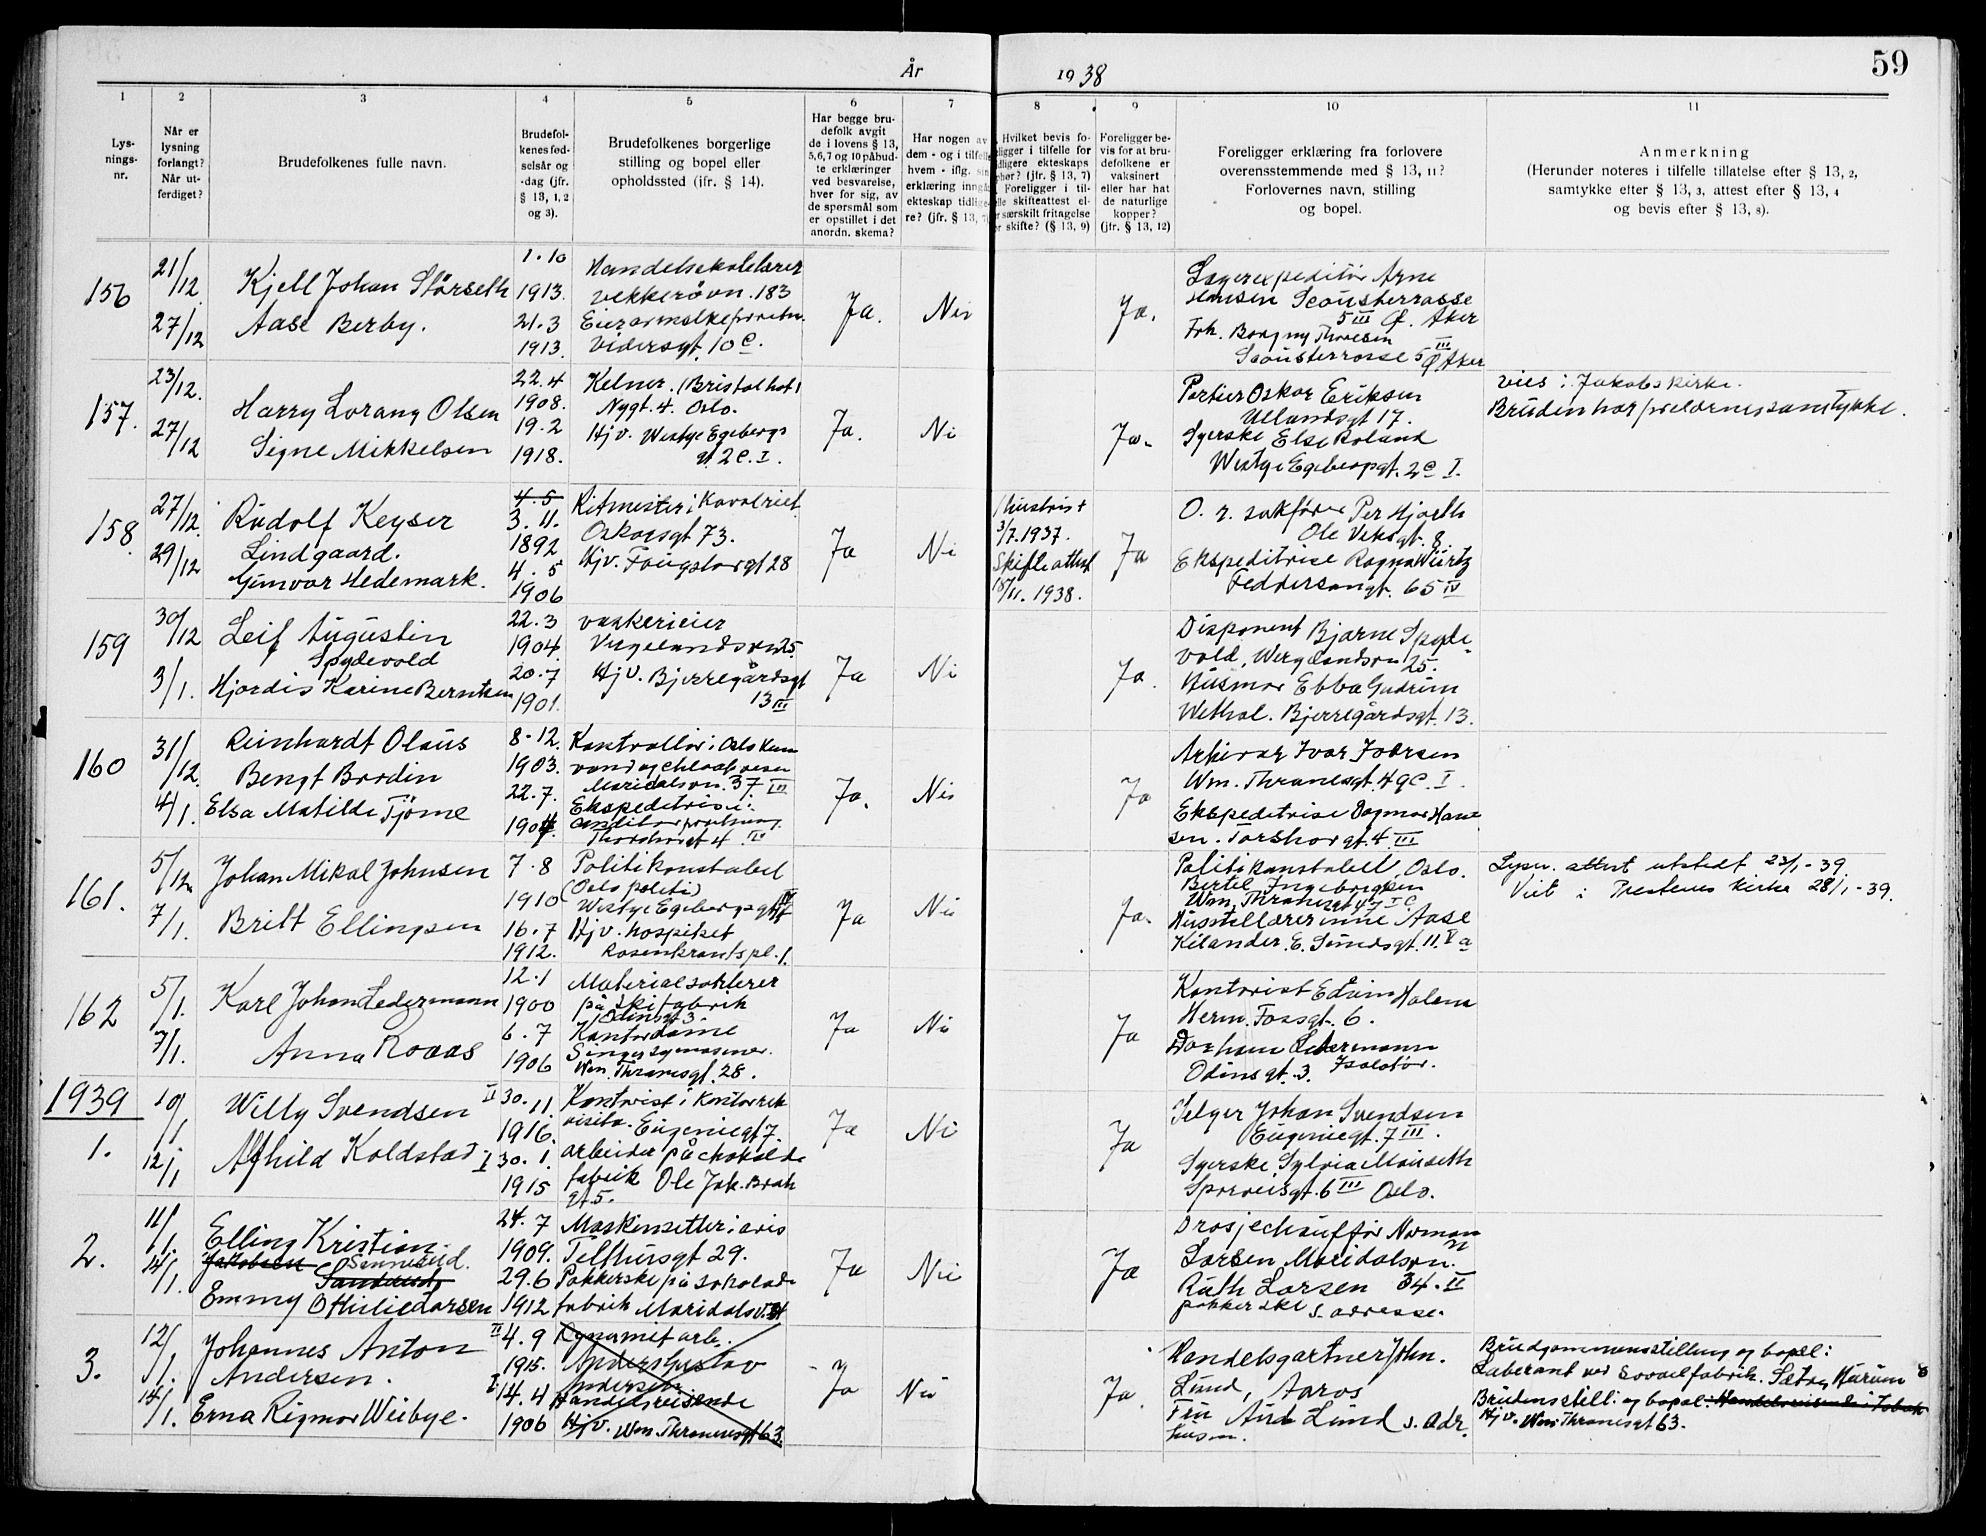 År 1938
59
1 2 3 4 5 6 7 8 9 10 11
Lys-
nings-
nr.
Når er
lysning
forlangt?
Når ut-
ferdiget?
Brudefolkenes fulle navn.
Brudefol-
kenes fød-
selsår og
-dag (jfr.
§ 13, 1, 2
og 3).
Brudefolkenes borgerlige
stilling og bopel eller
opholdssted (jfr. § 14).
Har begge bru-
defolk avgit
de i lovens § 13,
5, 6, 7 og 10 påbud-
te erklæringer
ved besvarelse,
hver for sig, av
de spørsmål som
er opstillet i det
anordn. skema?
Har nogen av
dem - og i tilfelle
hvem - iflg. sin
erklæring inngå
ekteskap tidlige-
re? (jfr. § 13, 7)
Hvilket bevis fo-
ligger i tilfelle for
idligere ekteskaps
phør? (jfr. § 13, 7)
Foreligger i til-
elle skifteattest el-
r særskilt fritagelse
er skifte? (§ 13, 9)
Foreligger be-
vis for at bru-
defolkene er
vaksinert
eller har hat
de naturlige
kopper?
(jfr. § 13, 12)
Foreligger erklæring fra forlovere
overensstemmende med § 13, 11?
Forlovernes navn, stilling
og bopel.
Anmerkning
(Herunder noteres i tilfelle tillatelse efter § 13, 2,
samtykke efter § 13, 3, attest efter § 13, 4
og bevis efter § 13, 8).
156
21/12
27/12
Kjell Johan Störseth
Aase Berby.
1.10
1913.
21.3
1913.
Handelsskolelærer
vekkerövn. 183
Vidarsgt. 10 c.
Ja.
Nei
Ja.
Lagerexpeditör Arne
Hansen Scousterrasse
5 III Ø. Aker
Frk. Borgny Thoresen
Scousterrasse 5 III Ø Aker
157.
23/12.
27/12
Harry Lorang Olsen
Signe Mikkelsen
22.4
1908.
19.2
1918.
Kelner. (Bristol hot)
Nygt. 4. Oslo.
Hjv. Westye Egebergs
gt. 2 c. I.
Ja.
Nei
Ja.
Portier Oskar Eriksen
Ullandsgt 17.
Syerske Else Roland
Westye Egebergsgt. 2 c I.
vies i Jakobs kirke.
Bruden har foreldrenes samtykke.
158.
27/12.
29/12
Rudolf Keyser
Lindgaard.
Gunvor Hedemark.
4.5
3.11.
1892
4.5
1906
Ritmester i Kavaleriet
Oskarsgt 73.
Hjv. Fougstadsgt 28
Ja
Nei
3/7.1937.
Skifteattest
18/11. 1938.
Ja
O. r. sakförer Per Hjorth
Ole Viksgt. 8.
Ekspeditrise Ragna Würtz
Feddersensgt. 65 IV
159
30/12
3/1.
Leif Augustin
Spydevold
Hjördis Karine Berntsen
22.3
1904.
20.7
1901.
vaskerieier
Vergelandsvn 25.
Hjv. Bjerregårdsgt
13 III
Ja
Nei
Ja.
Disponent Bjarne Spyde-
vold, Wergelandsvn 25.
Husmor Ebba Gudrun
Wethal. Bjerregårdsgt. 13.
160
31/12.
4/1.
Reinhardt Olaus
Bengt Bordin
Elsa Matilde Tjöme
8.12.
1903.
22.7.
1904.
Kontrollör i Oslo kom
vand og kloakvesen
Maridalsvn. 37. III
Ekspeditrise i
Thorshovgt 4 III
Ja.
Nei
Ja
Arkivar Ivar Iversen
Wm. Thranesgt. 49 c. I.
Ekspeditrise Dagmar Han-
sen. Torshovgt. 4 III
161.
5/12
7/1.
Johan Mikal Johnsen
Britt Ellingsen
7.8
1910
16.7
1912.
Politikonstabel
(Oslo politi)
Westye Egebergsgt
Hjv. hospitset
Rosenkrantspl. 1.
Ja
Nei
Ja.
Politikonstabel, Oslo.
Bertel Ingebrigtsen
Wm. Thranesgt
Husstellærerinne Aase
Kilander. E. Sundsgt. 11. V a
Lysn. attest utstedt 23/1-39.
Viet i Prestenes kirke 28/1-39.
162
5/1.
7/1.
Karl Johan Ledermann
Anna Roaas
12.1
1900
6.7
1906
Materialsorterer
på skifabrik
Odinsgt 3.
Kontordame
Singer symaskiner.
Wm. Thranesgt. 28.
Ja
Nei
Ja
Kontorist Edvin Halens
Herm. Fossgt. 6.
Ledermann
Odinsgt. 3. Isolatör.
1939
1.
10/1
12/1
Willy Svendsen II
Alfhild Koldstad. I
30.11.
1916.
30.1.
1915
Kontorist i kontorrek
visita. Eugeniegt 7.
arbeider på chokolde
fabrik Ole Jak. Broch
gt 5.
Ja
Nei
Ja
Selger Johan Svendsen
Eugeniegt. 7 III.
Syerske Sylvia Mauseth
Sporveisgt. 6 III Oslo.
2.
11/1.
14/1.
Elling Kristian
Jakobsen Sennerud.
Sanderud
Emmy Othilie Larsen
24.7
1909.
29.6
1912
Maskinsetter i avis
Telthusgt 29.
Pakkerske på sokolade
fabrik Maridalsv. 34
Ja
Nei
Ja
Drosjechaufför Norman
Larsen Maridalsvn.
Ruth Larsen 34. II
pakkerske s. adresse.
3.
12/1.
14/1.
Johannes Anton II
Andersen.
Erna Rigmor Wiibye. I
4.9
1915.
14.4
1906
Dynamitarb.
Anders Gustav
Andersen
Handelsreisende
Hjv. Wm. Thranesgt 63.
Ja
Nei
Ja.
Handelsgartner John.
Lund, Aaros
Fru Aud Lund s. adr.
husm.
Brudgommens stilling og bopel:
Laborant ved Sovoelfabrik. Sætre, Hurum
Brudens still. og bopel: Handelsreisende i Tobak
Hjv. Wm. Thranesgt 63.